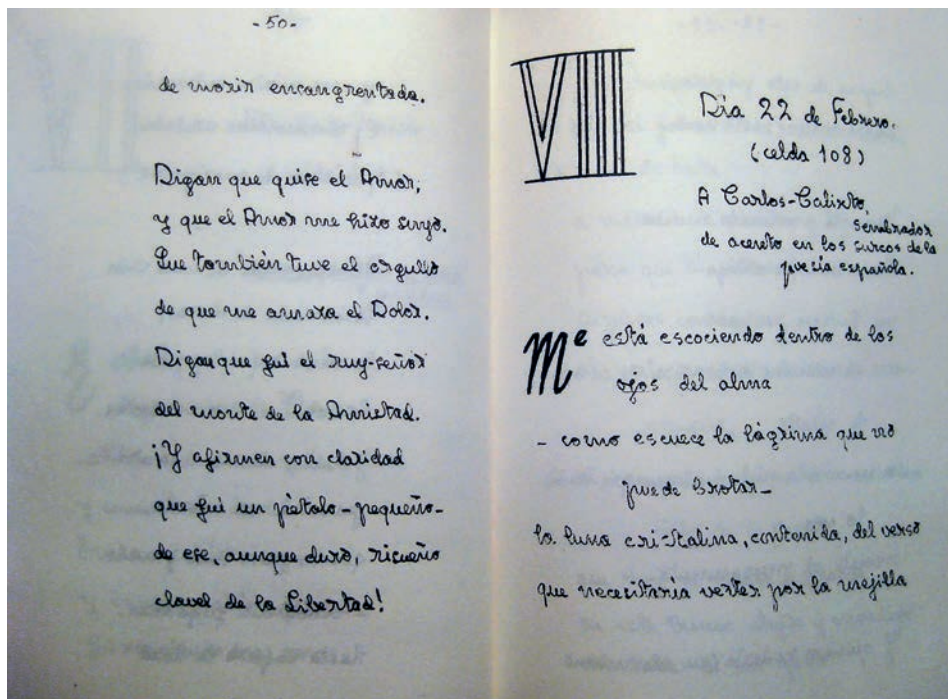 -50-
de morir ensangrentada.
Digan que quise el Amor,
y que el Amor me hizo suyo.
Que también tuve el orgullo
de que me amara el Dolor.
Digan que fui el ruy-señor
del monte de la Amistad.
¡Y afirmen con claridad
que fui un pétalo-pequeño-
de ese, aunque duro, risueño
clavel de la Libertad!
VIIII
Día 22 de Febrero.
(celda 108)
A Carlos-Calixto,
sembrador
de acento en los surcos de la
poesía española.
Me está escociendo dentro de los
ojos del alma
- como escuece la lágrima que no
puede brotar-
la cri-stalina, contenida, del verso
que necesitaría verter por la mejilla